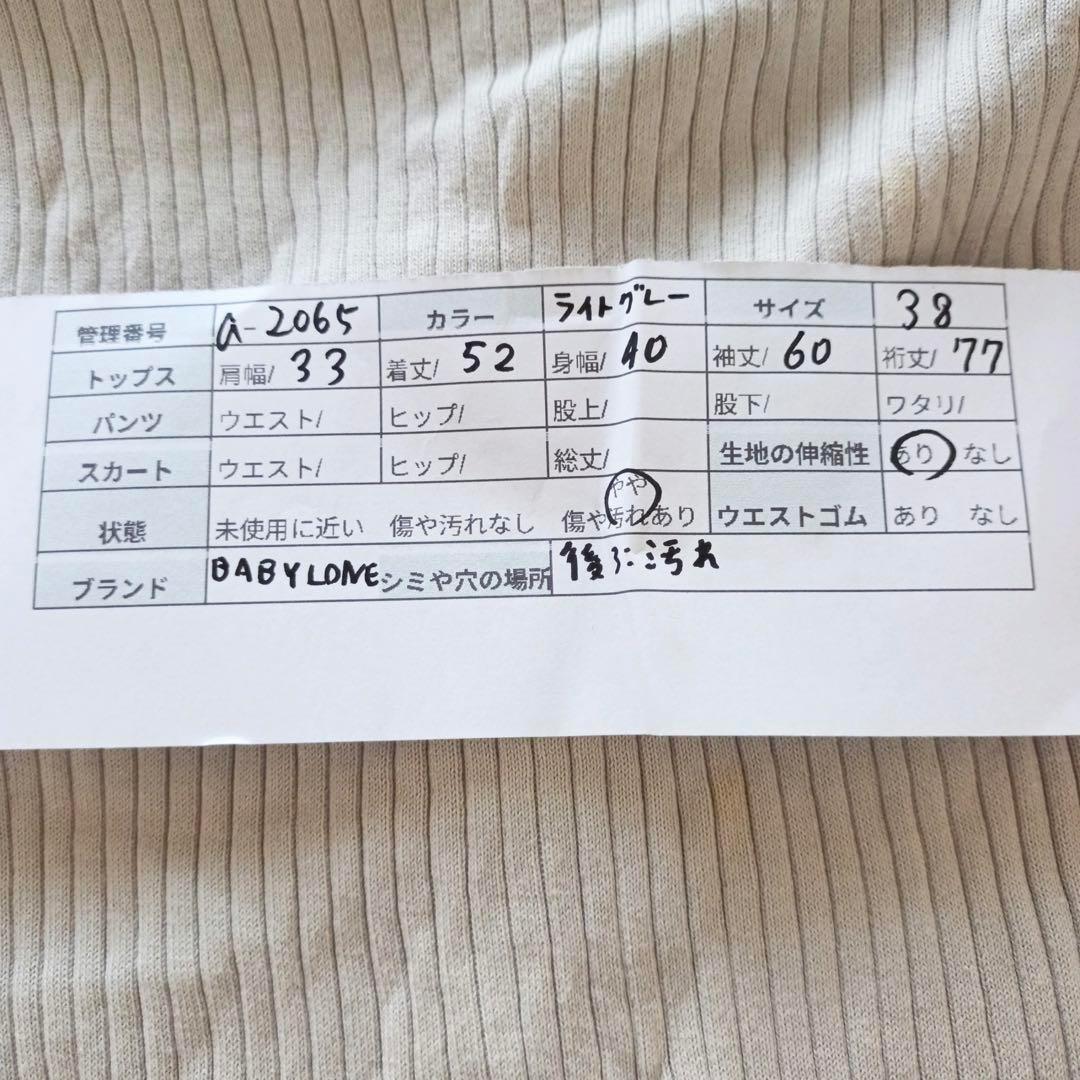 管理番号 a-2065 カラー ライトグレー サイズ 38
トップス 肩幅/ 33 着丈/ 52 身幅/ 40 袖丈/ 60 裄丈/ 77
パンツ ウエスト/ ヒップ/ 股上/ 股下/ ワタリ/
スカート ウエスト/ ヒップ/ 総丈/ 生地の伸縮性 あり なし
やや
状態 未使用に近い 傷や汚れなし 傷や汚れあり ウエストゴム あり なし
ブランド BABYLONE シミや穴の場所 後ろに汚れ